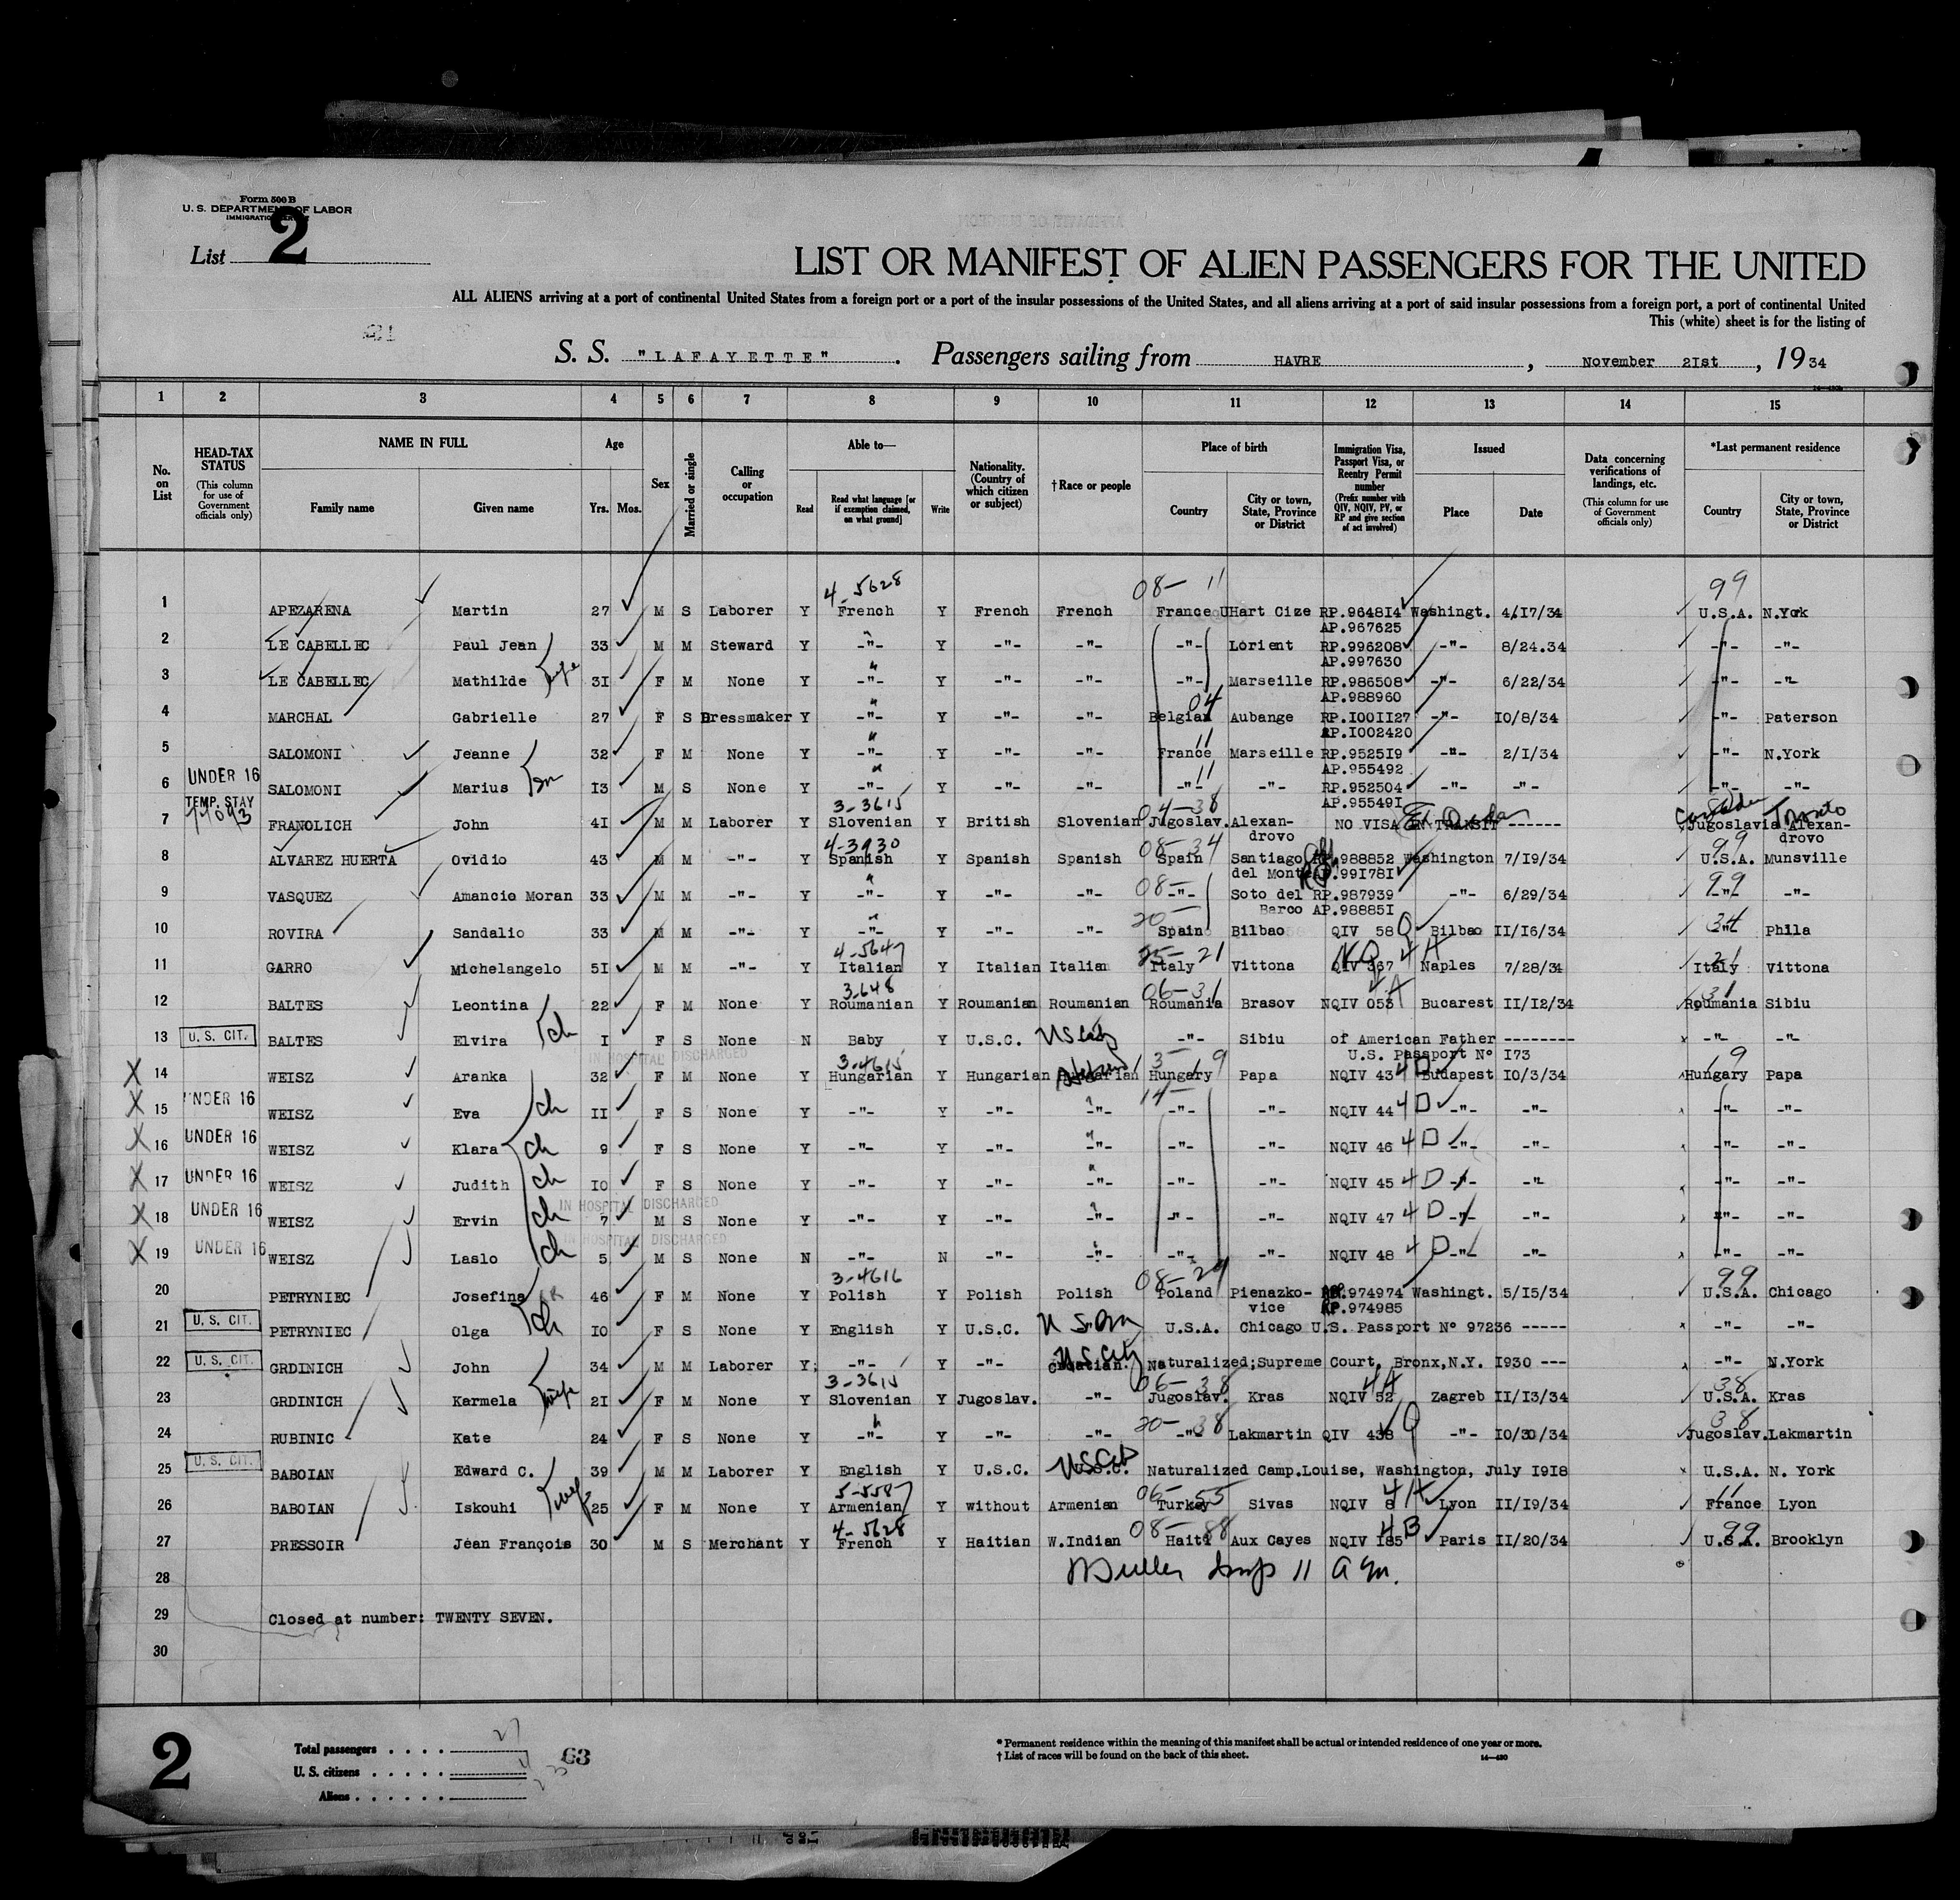 Form 500 B
U. S. DEPARTMENT OF LABOR
List 2
LIST OR MANIFEST OF ALIEN PASSENGERS FOR THE UNITED
ALL ALIENS arriving at a port of continental United States from a foreign port or a port of the insular possessions of the United States, and all aliens arriving at a port of said insular possessions from a foreign port, a port of continental United
This (white) sheet is for the listing of
S. S. "LAFAYETTE" . Passengers sailing from HAVRE , November 2Ist , 19 34
1 2 3 4 5 6 7 8 9 10 11 12 13 14 15
No. on List
HEAD-TAX STATUS (This column for use of Government officials only)
NAME IN FULL Family name Given name
Age Yrs. Mos.
Sex
Married or single
Calling or occupation
Able to— Read Read what language [or if exemption claimed, on what ground] Write
Nationality. (Country of which citizen or subject)
†Race or people
Place of birth Country City or town, State, Province or District
Immigration Visa, Passport Visa, or Reentry Permit number (Prefix number with QIV, NQIV, PV, or RP and give section of act involved)
Issued Place Date
Data concerning verifications of landings, etc. (This column for use of Government officials only)
*Last permanent residence Country City or town, State, Province or District
4-5628 08- 11 99
1 APEZARENA Martin 27 M S Laborer Y French Y French French France UHart Cize RP.9648I4 Washingt. 4/I7/34 U.S.A. N.York
AP.967625
2 LE CABELLEC Paul Jean 33 M M Steward Y -"- Y -"- -"- -"- Lorient RP.996208 -"- 8/24.34 -"- -"-
AP.997630
3 LE CABELLEC Mathilde wife 3I F M None Y -"- Y -"- -"- -"- Marseille RP.986508 -"- 6/22/34 -"- -"-
AP.988960
04
4 MARCHAL Gabrielle 27 F S Dressmaker Y -"- Y -"- -"- Belgian Aubange RP.I00II27 -"- I0/8/34 -"- Paterson
AP.I002420
11
5 SALOMONI Jeanne 32 F M None Y -"- Y -"- -"- France Marseille RP.9525I9 -"- 2/I/34 -"- N.York
AP.955492
UNDER 16 11
6 SALOMONI Marius Son I3 M S None Y -"- Y -"- -"- -"- -"- RP.952504 -"- -"- -"- -"-
AP.95549I
TEMP. STAY 3-3615 04-38 Toronto
7 FRANOLICH John 4I M M Laborer Y Slovenian Y British Slovenian Jugoslav. Alexan- NO VISA IN TRANSIT ------ Jugoslavia Alexan-
drovo drovo
4-3930 08-34 99
8 ALVAREZ HUERTA Ovidio 43 M M -"- Y Spanish Y Spanish Spanish Spain Santiago RP.988852 Washington 7/I9/34 U.S.A. Munsville
del Monte AP.99I78I
08- 99
9 VASQUEZ Amancio Moran 33 M M -"- Y -"- Y -"- -"- -"- Soto del RP.987939 -"- 6/29/34 -"- -"-
Barco AP.98885I
20- 34
10 ROVIRA Sandalio 33 M M -"- Y -"- Y -"- -"- Spain Bilbao QIV 58 Q Bilbao II/I6/34 -"- Phila
4-5647 25-21 NQ 4A 21
11 GARRO Michelangelo 5I M M -"- Y Italian Y Italian Italian Italy Vittona QIV 367 Naples 7/28/34 Italy Vittona
3-648 06-31 4A 31
12 BALTES Leontina 22 F M None Y Roumanian Y Roumanian Roumanian Roumania Brasov NQIV 053 Bucarest II/I2/34 Roumania Sibiu
13 U. S. CIT. BALTES Elvira ch I F S None N Baby Y U.S.C. -"- Sibiu of American Father -------- -"- -"-
IN HOSPITAL DISCHARGED U.S. Passport Nº I73
3-4615 3- 19 9
X 14 WEISZ Aranka 32 F M None Y Hungarian Y Hungarian Hungarian Hungary Papa NQIV 43 4D Budapest I0/3/34 Hungary Papa
UNDER 16 14-
X 15 WEISZ Eva ch II F S None Y -"- Y -"- -"- -"- -"- NQIV 44 4D -"- -"- -"- -"-
X 16 UNDER 16 WEISZ Klara ch 9 F S None Y -"- Y -"- -"- -"- -"- NQIV 46 4D -"- -"- -"- -"-
X 17 UNDER 16 WEISZ Judith ch I0 F S None Y -"- Y -"- -"- -"- -"- NQIV 45 4D -"- -"- -"- -"-
IN HOSPITAL DISCHARGED
X 18 UNDER 16 WEISZ Ervin ch 7 M S None Y -"- Y -"- -"- -"- -"- NQIV 47 4D -"- -"- -"- -"-
IN HOSPITAL DISCHARGED
X 19 UNDER 16 WEISZ Laslo ch 5 M S None N -"- N -"- -"- -"- -"- NQIV 48 4D -"- -"- -"- -"-
3-4616 08-29 99
20 PETRYNIEC Josefina 46 F M None Y Polish Y Polish Polish Poland Pienazko- RP.974974 Washingt. 5/I5/34 U.S.A. Chicago
vice AP.974985
21 U. S. CIT. PETRYNIEC Olga ch I0 F S None Y English Y U.S.C. U.S.A. Chicago U.S. Passport Nº 97236 ----- -"- -"-
22 U. S. CIT. GRDINICH John 34 M M Laborer Y -"- Y -"- Croatian. Naturalized;Supreme Court, Bronx,N.Y. I930 --- -"- N.York
3-3615 06-38 4A 38
23 GRDINICH Karmela wife 2I F M None Y Slovenian Y Jugoslav. -"- Jugoslav. Kras NQIV 52 Zagreb II/I3/34 U.S.A. Kras
20-38 Q 38
24 RUBINIC Kate 24 F S None Y -"- Y -"- -"- -"- Lakmartin QIV 438 -"- I0/30/34 Jugoslav. Lakmartin
25 U. S. CIT. BABOIAN Edward C. 39 M M Laborer Y English Y U.S.C. U.S.C. Naturalized Camp.Louise, Washington, July I9I8 U.S.A. N. York
5-5587 06-55 4A 11
26 BABOIAN Iskouhi wife 25 F M None Y Armenian Y without Armenian Turkey Sivas NQIV 8 Lyon II/I9/34 France Lyon
4-5628 08-88 4B 99
27 PRESSOIR Jean François 30 M S Merchant Y French Y Haitian W.Indian Haiti Aux Cayes NQIV I85 Paris II/20/34 U.S.A. Brooklyn
28 Muller Insp 11 A m.
29 Closed at number: TWENTY SEVEN.
30
2
Total passengers . . . . 27
U. S. citizens . . . . . 4
Aliens . . . . . . 23
63
* Permanent residence within the meaning of this manifest shall be actual or intended residence of one year or more.
† List of races will be found on the back of this sheet. 14—430